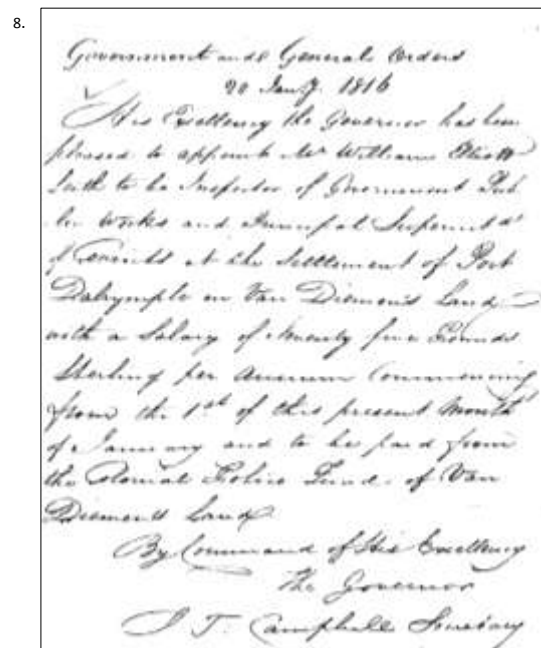 8.
Government and General Orders
20 Jany. 1816
His Excellency the Governor has been
pleased to appoint Mr William Elliott
Leith to be Inspector of Government Pub
lic Works and Principal Superintdt
of Convicts at the Settlement of Port
Dalrymple on Van Diemen's Land
with a Salary of Pounds
Sterling per Annum Commencing
from the 1st of this present Month
of January and to be paid from
the Colonial Police Fund of Van
Diemen's Land
By Command of His Excellency
the Governor
J. T. Campbell Secretary